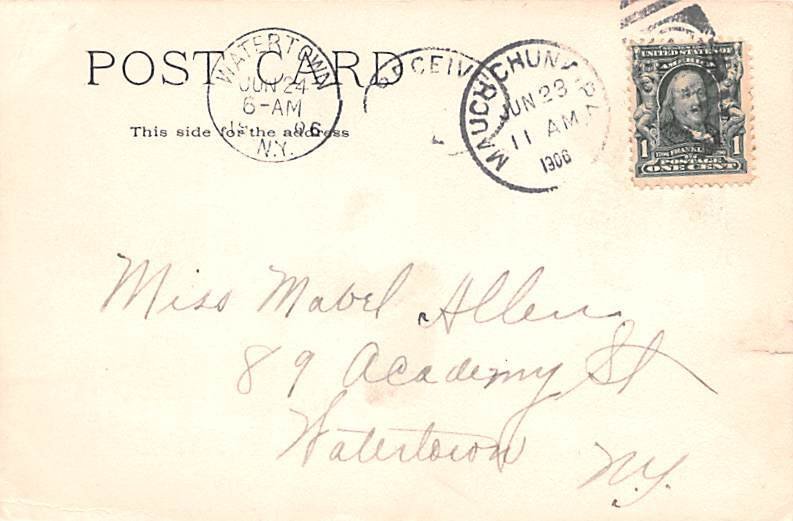 POST CARD
This side for the address
WATERTOWN
JUN 24
6-AM
N.Y.
RECEIV
MAUCH CHUNK, PA.
JUN 23
11 AM
1906
UNITED STATES OF
AMERICA
1 1
FRANKLIN
POSTAGE
ONE CENT
Miss Mabel Allen
89 Academy St
Watertown
N.Y.